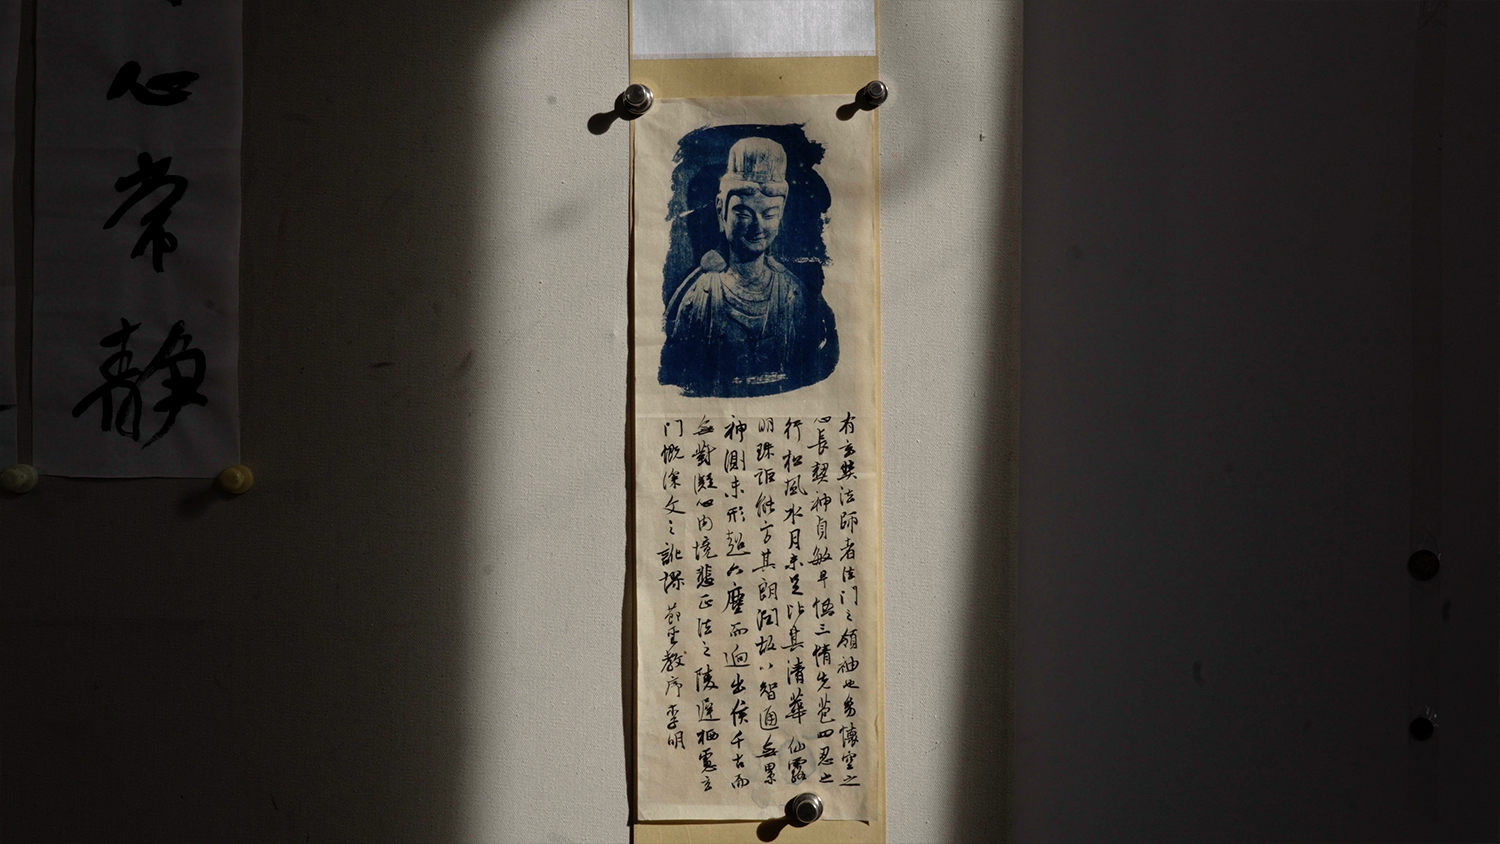 有玄奘法師者法門之領袖也幼懷空之
心長契神貞敏早悟三情先苞四忍之
行松風水月未足比其清華仙露
明珠詎能方其朗潤故以智通無累
神測未形超六塵而迥出隻千古而
無對凝心內境悲正法之陵遲栖慮玄
門慨深文之訛謬 節聖教序 李明
心常静